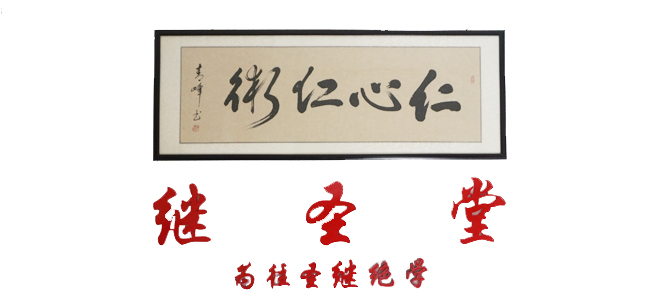 仁心仁術
青峰书
继圣堂
为往圣继绝学